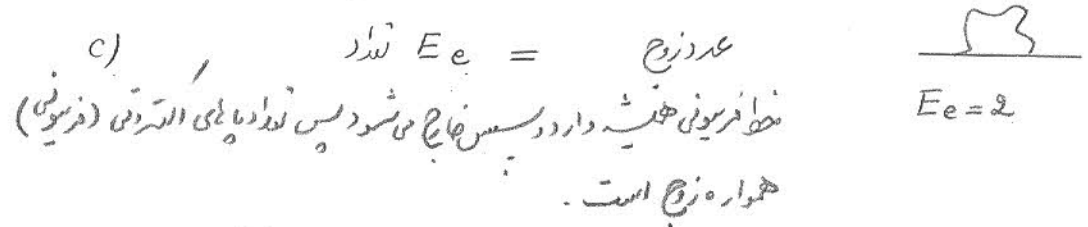 c) تعداد Ee = عدد زوج
خط فرمیونی همیشه وارد و سپس خارج می‌شود پس تعداد پاهای الکترونی (فرمیونی)
همواره زوج است.
Ee = 2